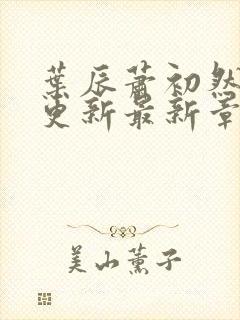 葉辰蕭初然
更新最新章
美山薰子